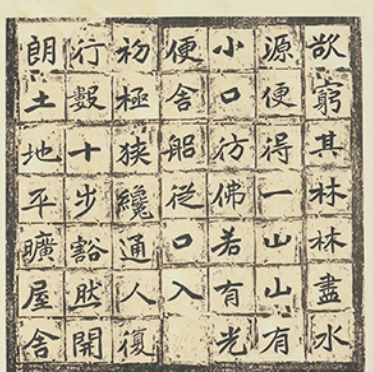 欲窮其林林盡水
源便得一山山有
小口彷佛若有光
便舍船從口入
初極狹纔通人復
行數十步豁然開
朗土地平曠屋舍